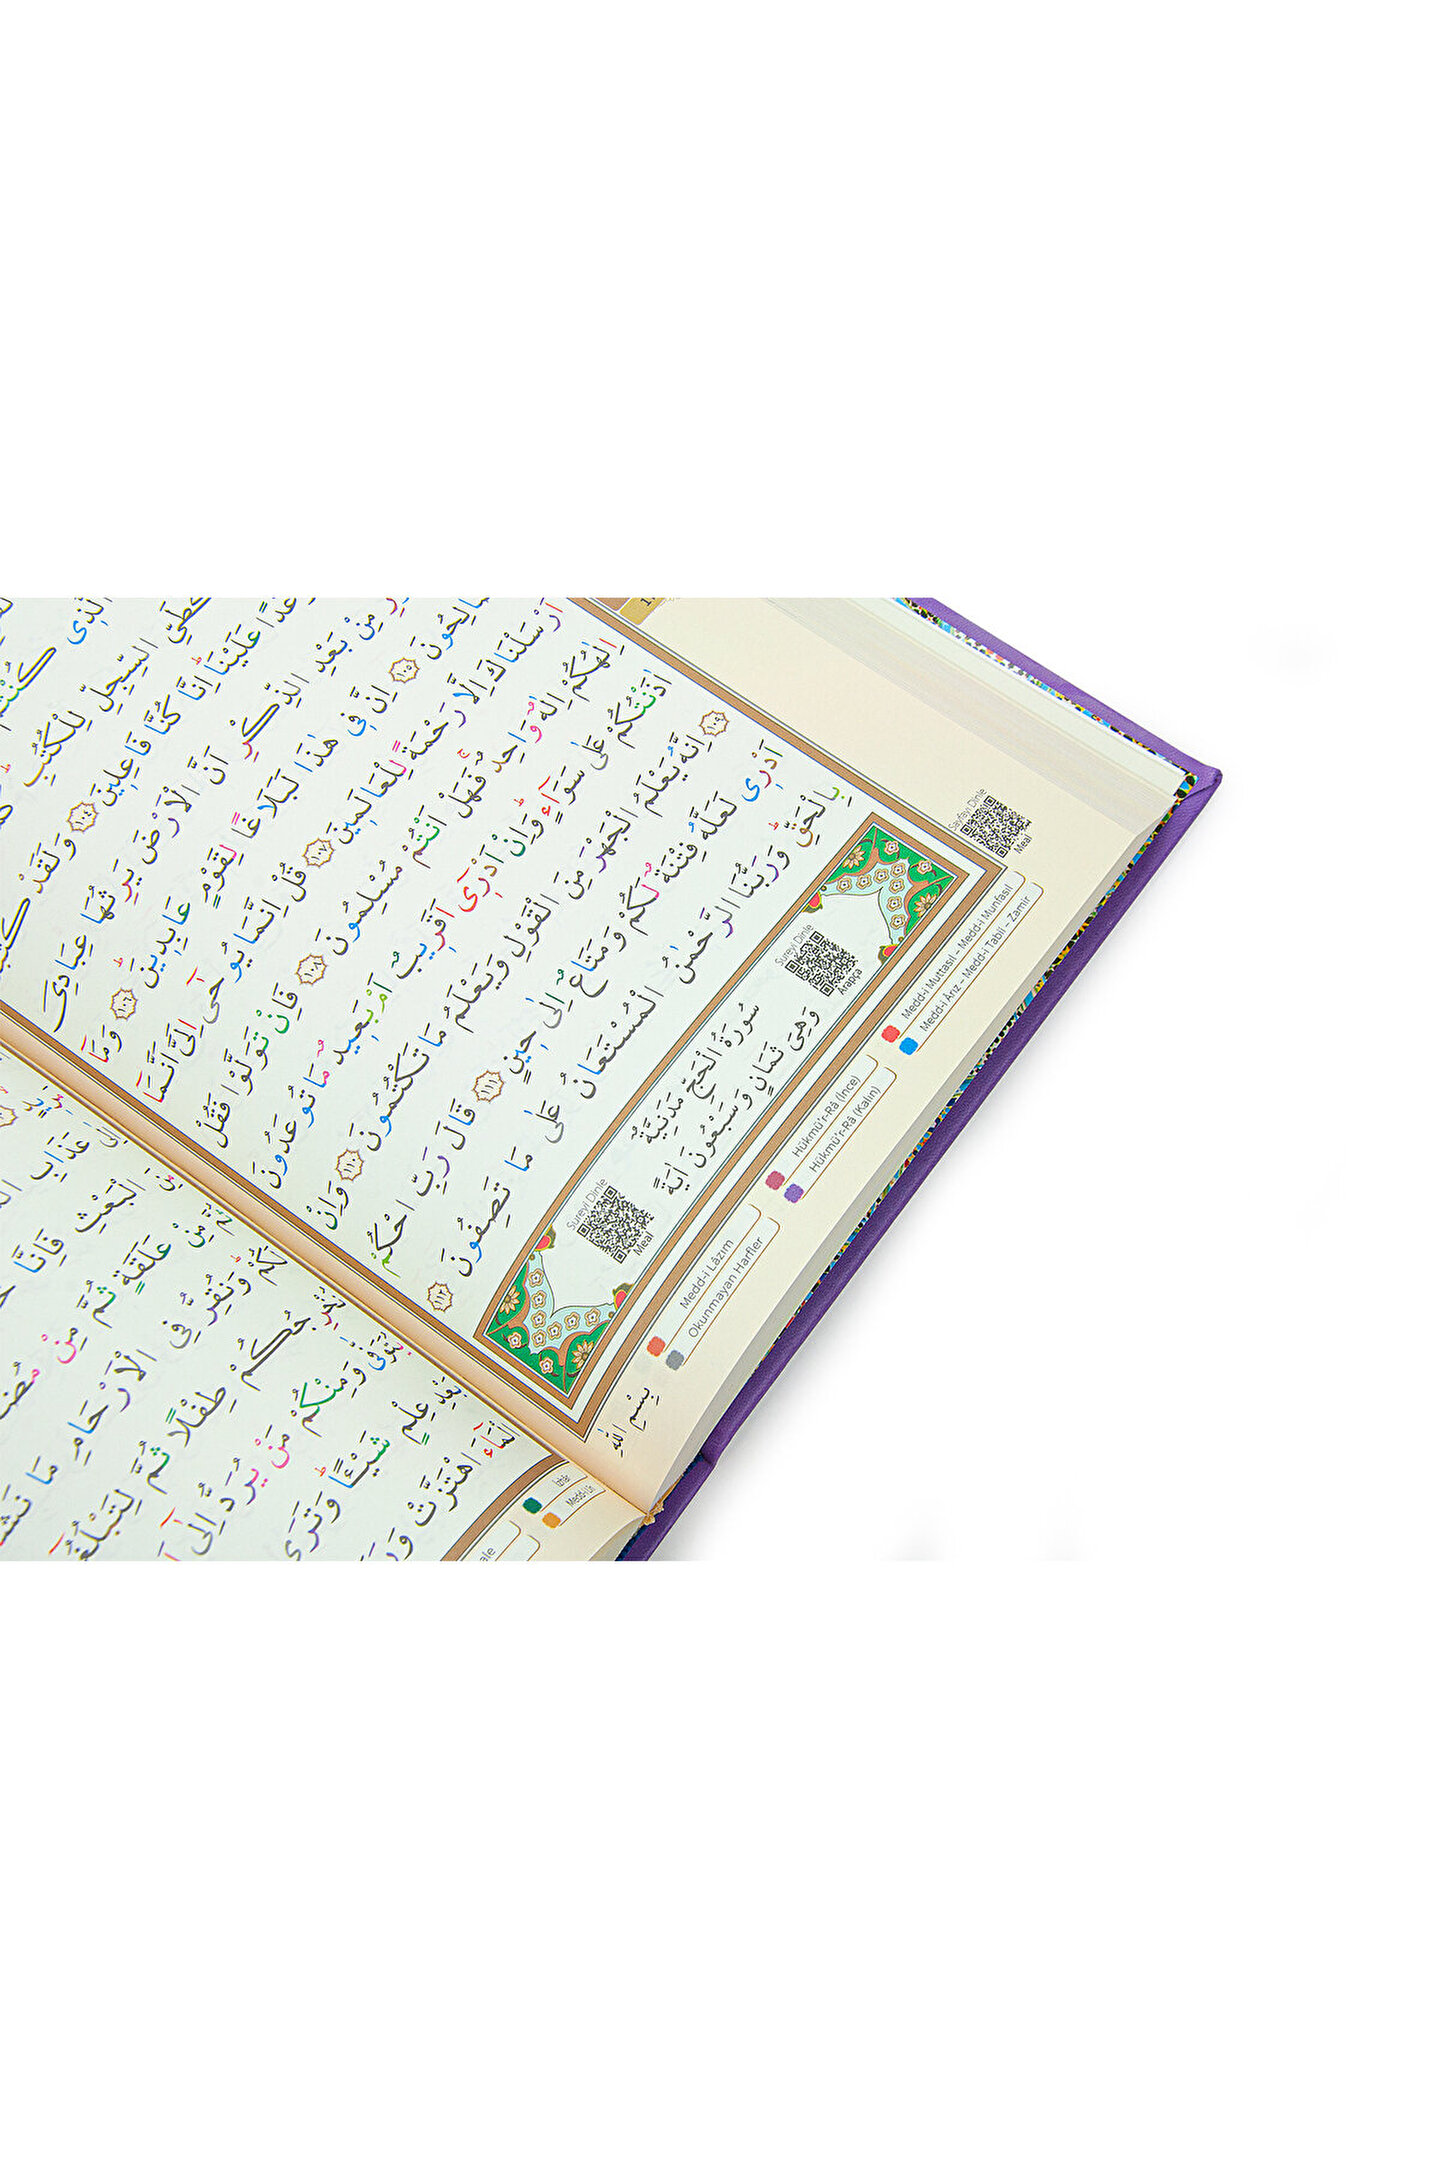 الَّذِى كُنْتُمْ
السِّجِلِّ لِلْكُتُبِ
عَلَيْنَا اِنَّا كُنَّا فَاعِلِينَ ﴿١٠٤﴾ وَلَقَدْ
مِنْ بَعْدِ الذِّكْرِ اَنَّ الْاَرْضَ يَرِثُهَا عِبَادِىَ
اِنَّ فِى هٰذَا لَبَلَاغًا لِقَوْمٍ عَابِدِينَ ﴿١٠٦﴾ وَمَٓا
اَرْسَلْنَاكَ اِلَّا رَحْمَةً لِلْعَالَمِينَ ﴿١٠٧﴾ قُلْ اِنَّمَا يُوحٰٓى اِلَىَّ اَنَّمَٓا
اِلٰهُكُمْ اِلٰهٌ وَاحِدٌ فَهَلْ اَنْتُمْ مُسْلِمُونَ ﴿١٠٨﴾ فَاِنْ تَوَلَّوْا فَقُلْ
اٰذَنْتُكُمْ عَلٰى سَوَٓاءٍ وَاِنْ اَدْرِٓى اَقَرِيبٌ اَمْ بَعِيدٌ مَا تُوعَدُونَ
﴿١٠٩﴾ اِنَّهُ يَعْلَمُ الْجَهْرَ مِنَ الْقَوْلِ وَيَعْلَمُ مَا تَكْتُمُونَ ﴿١١٠﴾ وَاِنْ
اَدْرِى لَعَلَّهُ فِتْنَةٌ لَكُمْ وَمَتَاعٌ اِلٰى حِينٍ ﴿١١١﴾ قَالَ رَبِّ احْكُمْ
بِالْحَقِّ وَرَبُّنَا الرَّحْمٰنُ الْمُسْتَعَانُ عَلٰى مَا تَصِفُونَ ﴿١١٢﴾
Sureyi Dinle
Arapça
سُورَةُ الْحَجِّ مَدَنِيَّةٌ
وَهِىَ ثَمَانٍ وَسَبْعُونَ اٰيَةً
Sureyi Dinle
Meal
Sayfayı Dinle
Meal
Medd-i Lâzım
Okunmayan Harfler
Hükmü'r-Râ (İnce)
Hükmü'r-Râ (Kalın)
Medd-i Muttasıl – Medd-i Munfasıl
Medd-i Arız – Medd-i Tabii – Zamir
بِسْمِ اللّٰهِ
عَذَابَ
الْبَعْثِ فَاِنَّا
عَلَقَةٍ ثُمَّ مِنْ
وَنُقِرُّ فِى الْاَرْحَامِ مَا
طِفْلًا ثُمَّ
وَمِنْكُمْ مَنْ يُرَدُّ اِلٰٓى
عِلْمٍ شَيْـًٔا وَتَرَى
اهْتَزَّتْ
İzhâr